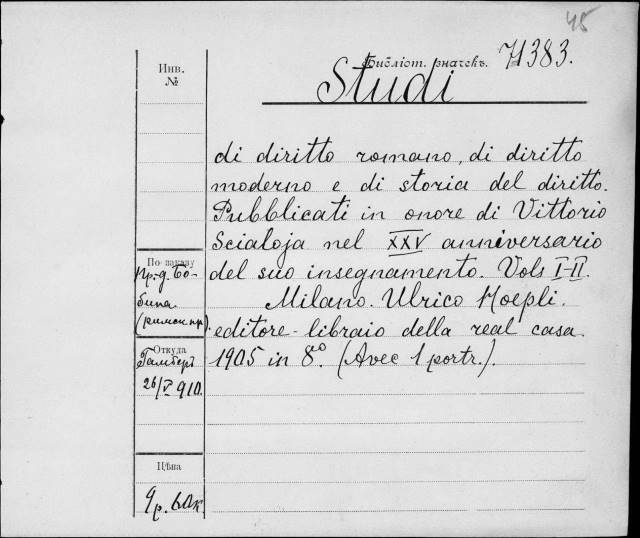 45
Библіот. значекъ. 71383.
Studi
Инв.
№
di diritto romano, di diritto
moderno e di storia del diritto.
Pubblicati in onore di Vittorio
Scialoja nel XXV anniversario
del suo insegnamento. Vols I-II.
Milano. Ulrico Hoepli.
editore-libraio della real casa.
1905 in 8°. (Avec 1 portr.).
По заказу
Пр.-д. Бо-
бина
(римск. пр.)
Откуда
Гамберъ
26/V 910.
Цѣна
9 р. 60 к.